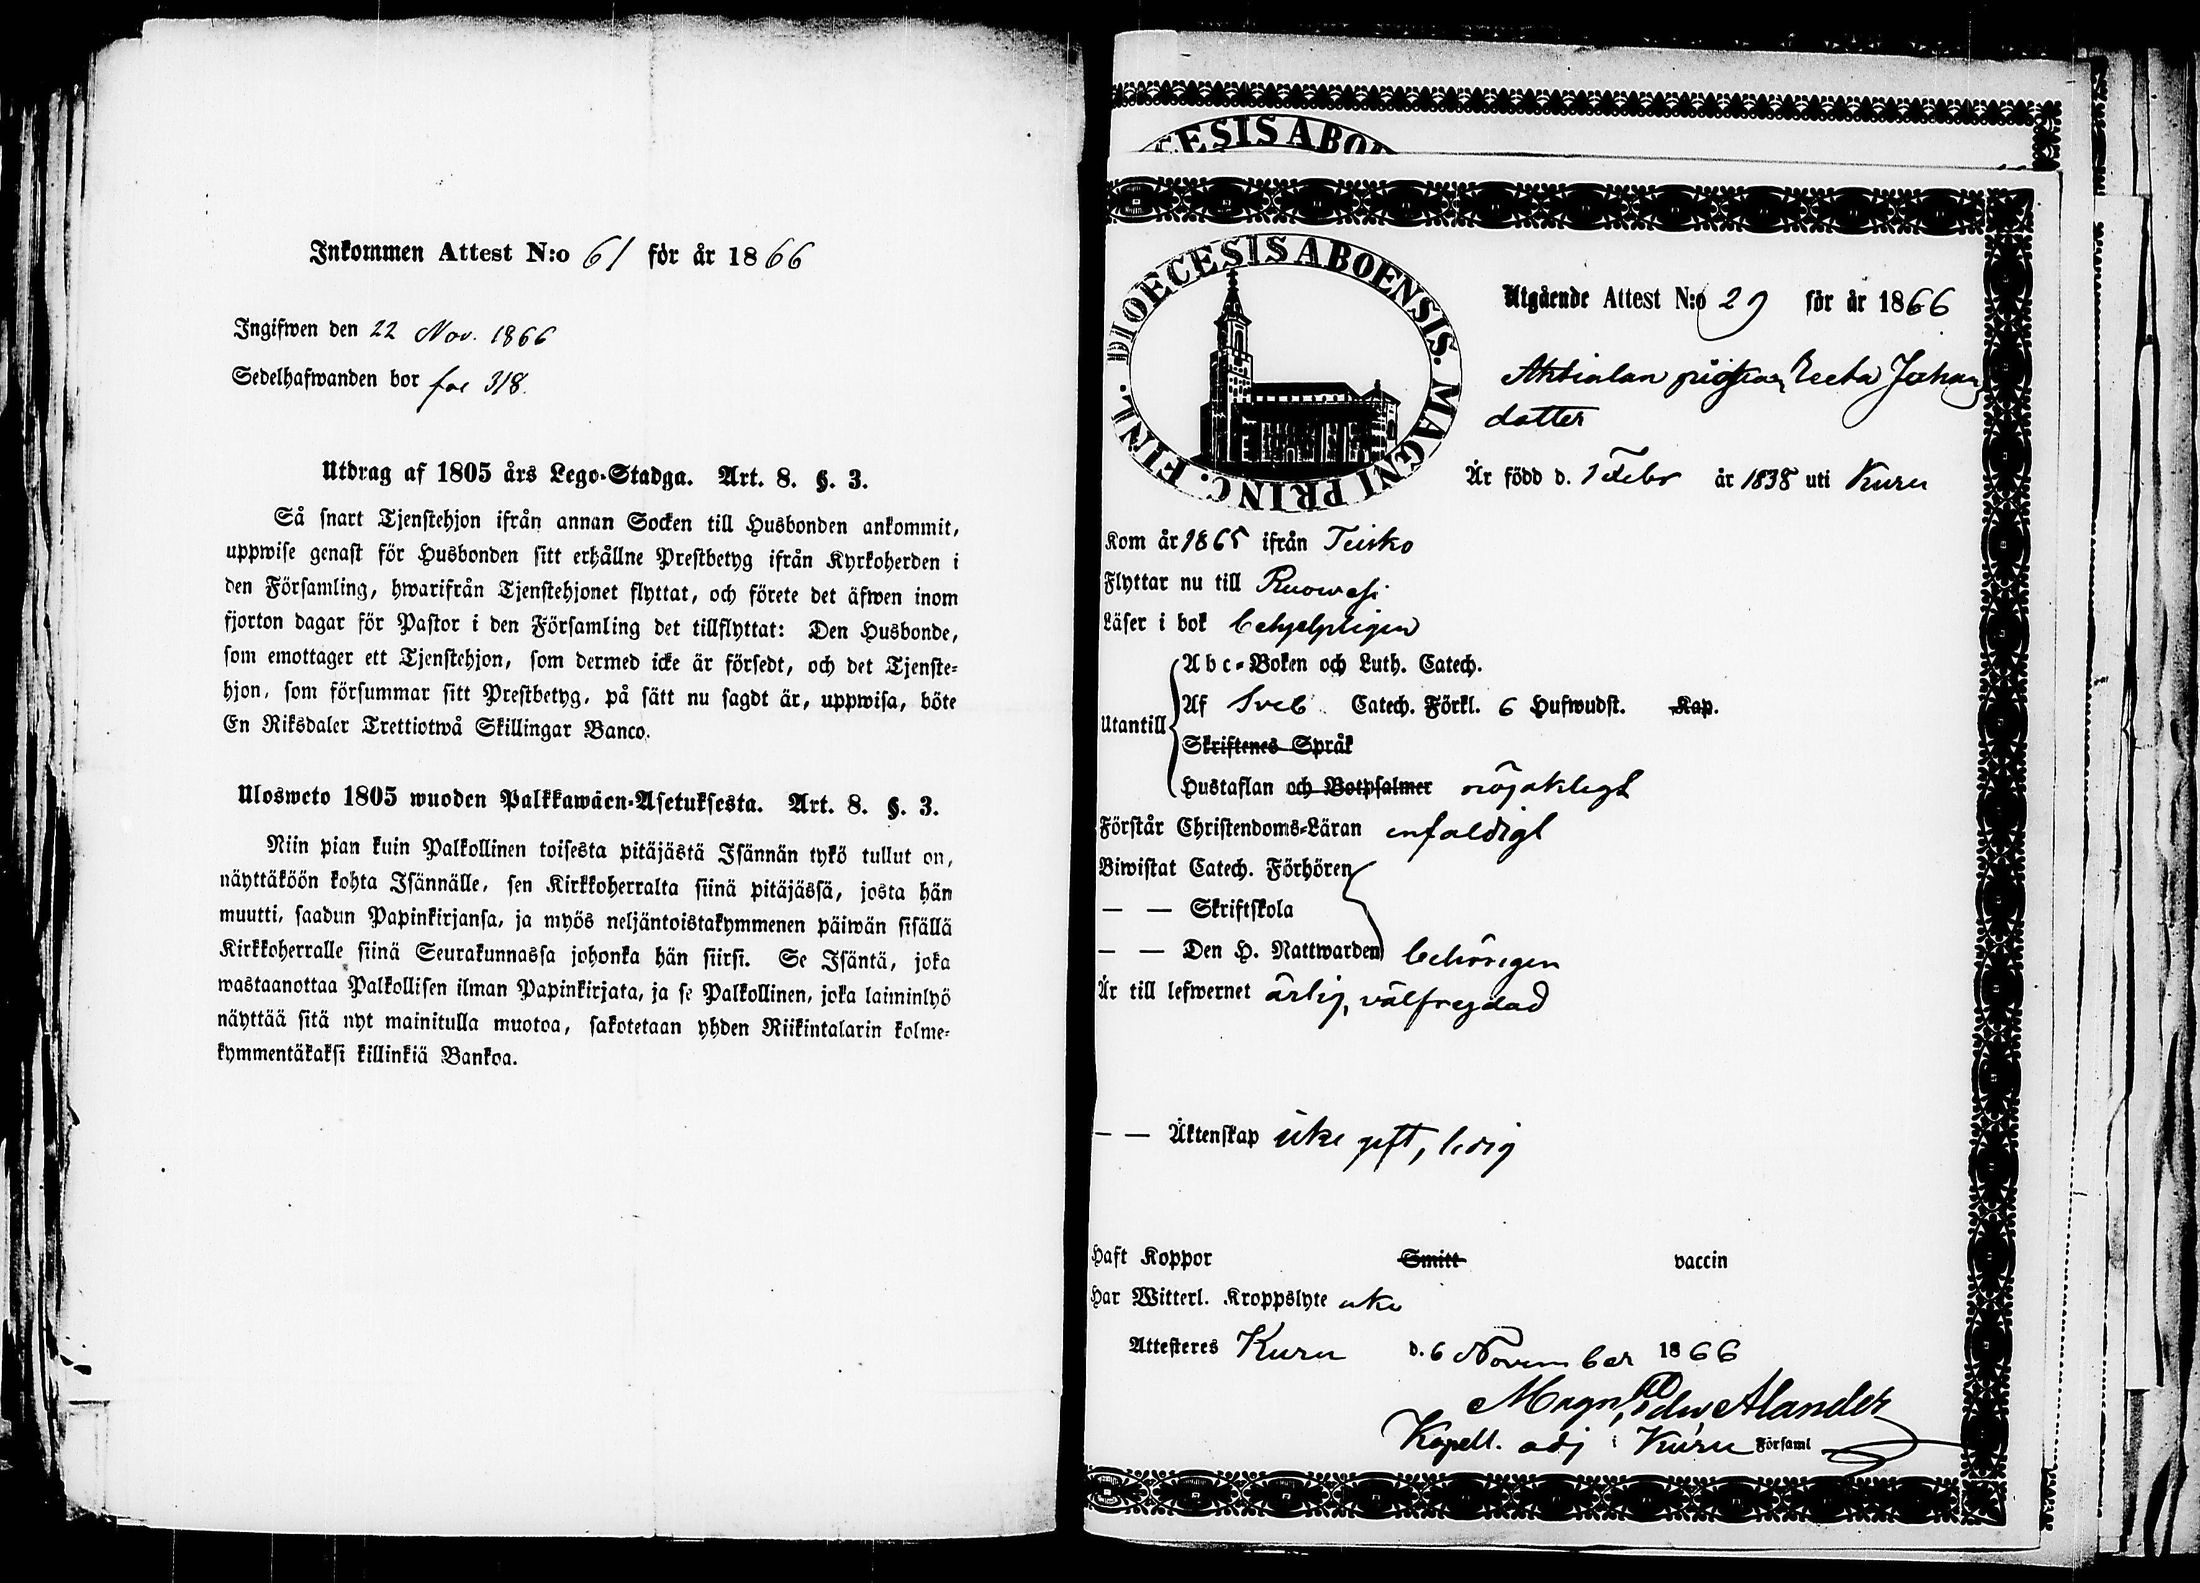 Inkommen Attest N:o 61 för år 1866
Ingifwen den 22 Nov. 1866
Sedelhafwanden bor fol 318.
Utdrag af 1805 års Lego-Stadga. Art. 8. §. 3.
Så snart Tjenstehjon ifrån annan Socken till Husbonden ankommit,
uppwise genast för Husbonden sitt erhållne Prestbetyg ifrån Kyrkoherden i
den Församling, hwarifrån Tjenstehjonet flyttat, och förete det äfwen inom
fjorton dagar för Pastor i den Församling det tillflyttat: Den Husbonde,
som emottager ett Tjenstehjon, som dermed icke är försedt, och det Tjenste-
hjon, som försummar sitt Prestbetyg, på sätt nu sagdt är, uppwisa, böte
En Riksdaler Trettiotwå Skillingar Banco.
Ulosweto 1805 wuoden Palkkawäen-Asetuksesta. Art. 8. §. 3.
Niin pian kuin Palkollinen toisesta pitäjästä Isännän tykö tullut on,
näyttäköön kohta Isännälle, sen Kirkkoherralta siinä pitäjässä, josta hän
muutti, saadun Papinkirjansa, ja myös neljäntoistakymmenen päiwän sisällä
Kirkkoherralle siinä Seurakunnassa johonka hän siirsi. Se Isäntä, joka
wastaanottaa Palkollisen ilman Papinkirjata, ja se Palkollinen, joka laiminlyö
näyttää sitä nyt mainitulla muotoa, sakotetaan yhden Riikintalarin kolme-
kymmentäkaksi killinkiä Bankoa.
DIOECESIS ABOENSIS. MAGNI PRINC. FINL.
Utgående Attest N:o 29 för år 1866
pigan Johans
dotter
Är född d. 1 Febr år 1838 uti Kuru
Kom år 1865 ifrån Teisko
Flyttar nu till Ruowesi
Läser i bok behjelpligen
Utantill
Abc-Boken och Luth. Catech.
Af Sveb. Catech. Förkl. 6 Hufwudst. Kap.
Skriftenes Språk
Hustaflan och Botpsalmer nöjaktligt
Förstår Christendoms-Läran enfaldigt
Biwistat Catech. Förhören
— — Skriftskola
— — Den H. Nattwarden behörigen
Är till lefwernet ärlig, välfregdad
— — Äktenskap icke gift, ledig
Haft Koppor Smitt vaccin
Har Witterl. Kroppslyte icke
Attesteres Kuru d. 6 November 1866
Magn. Edv. Alander
Kapell. adj i Kuru Församl